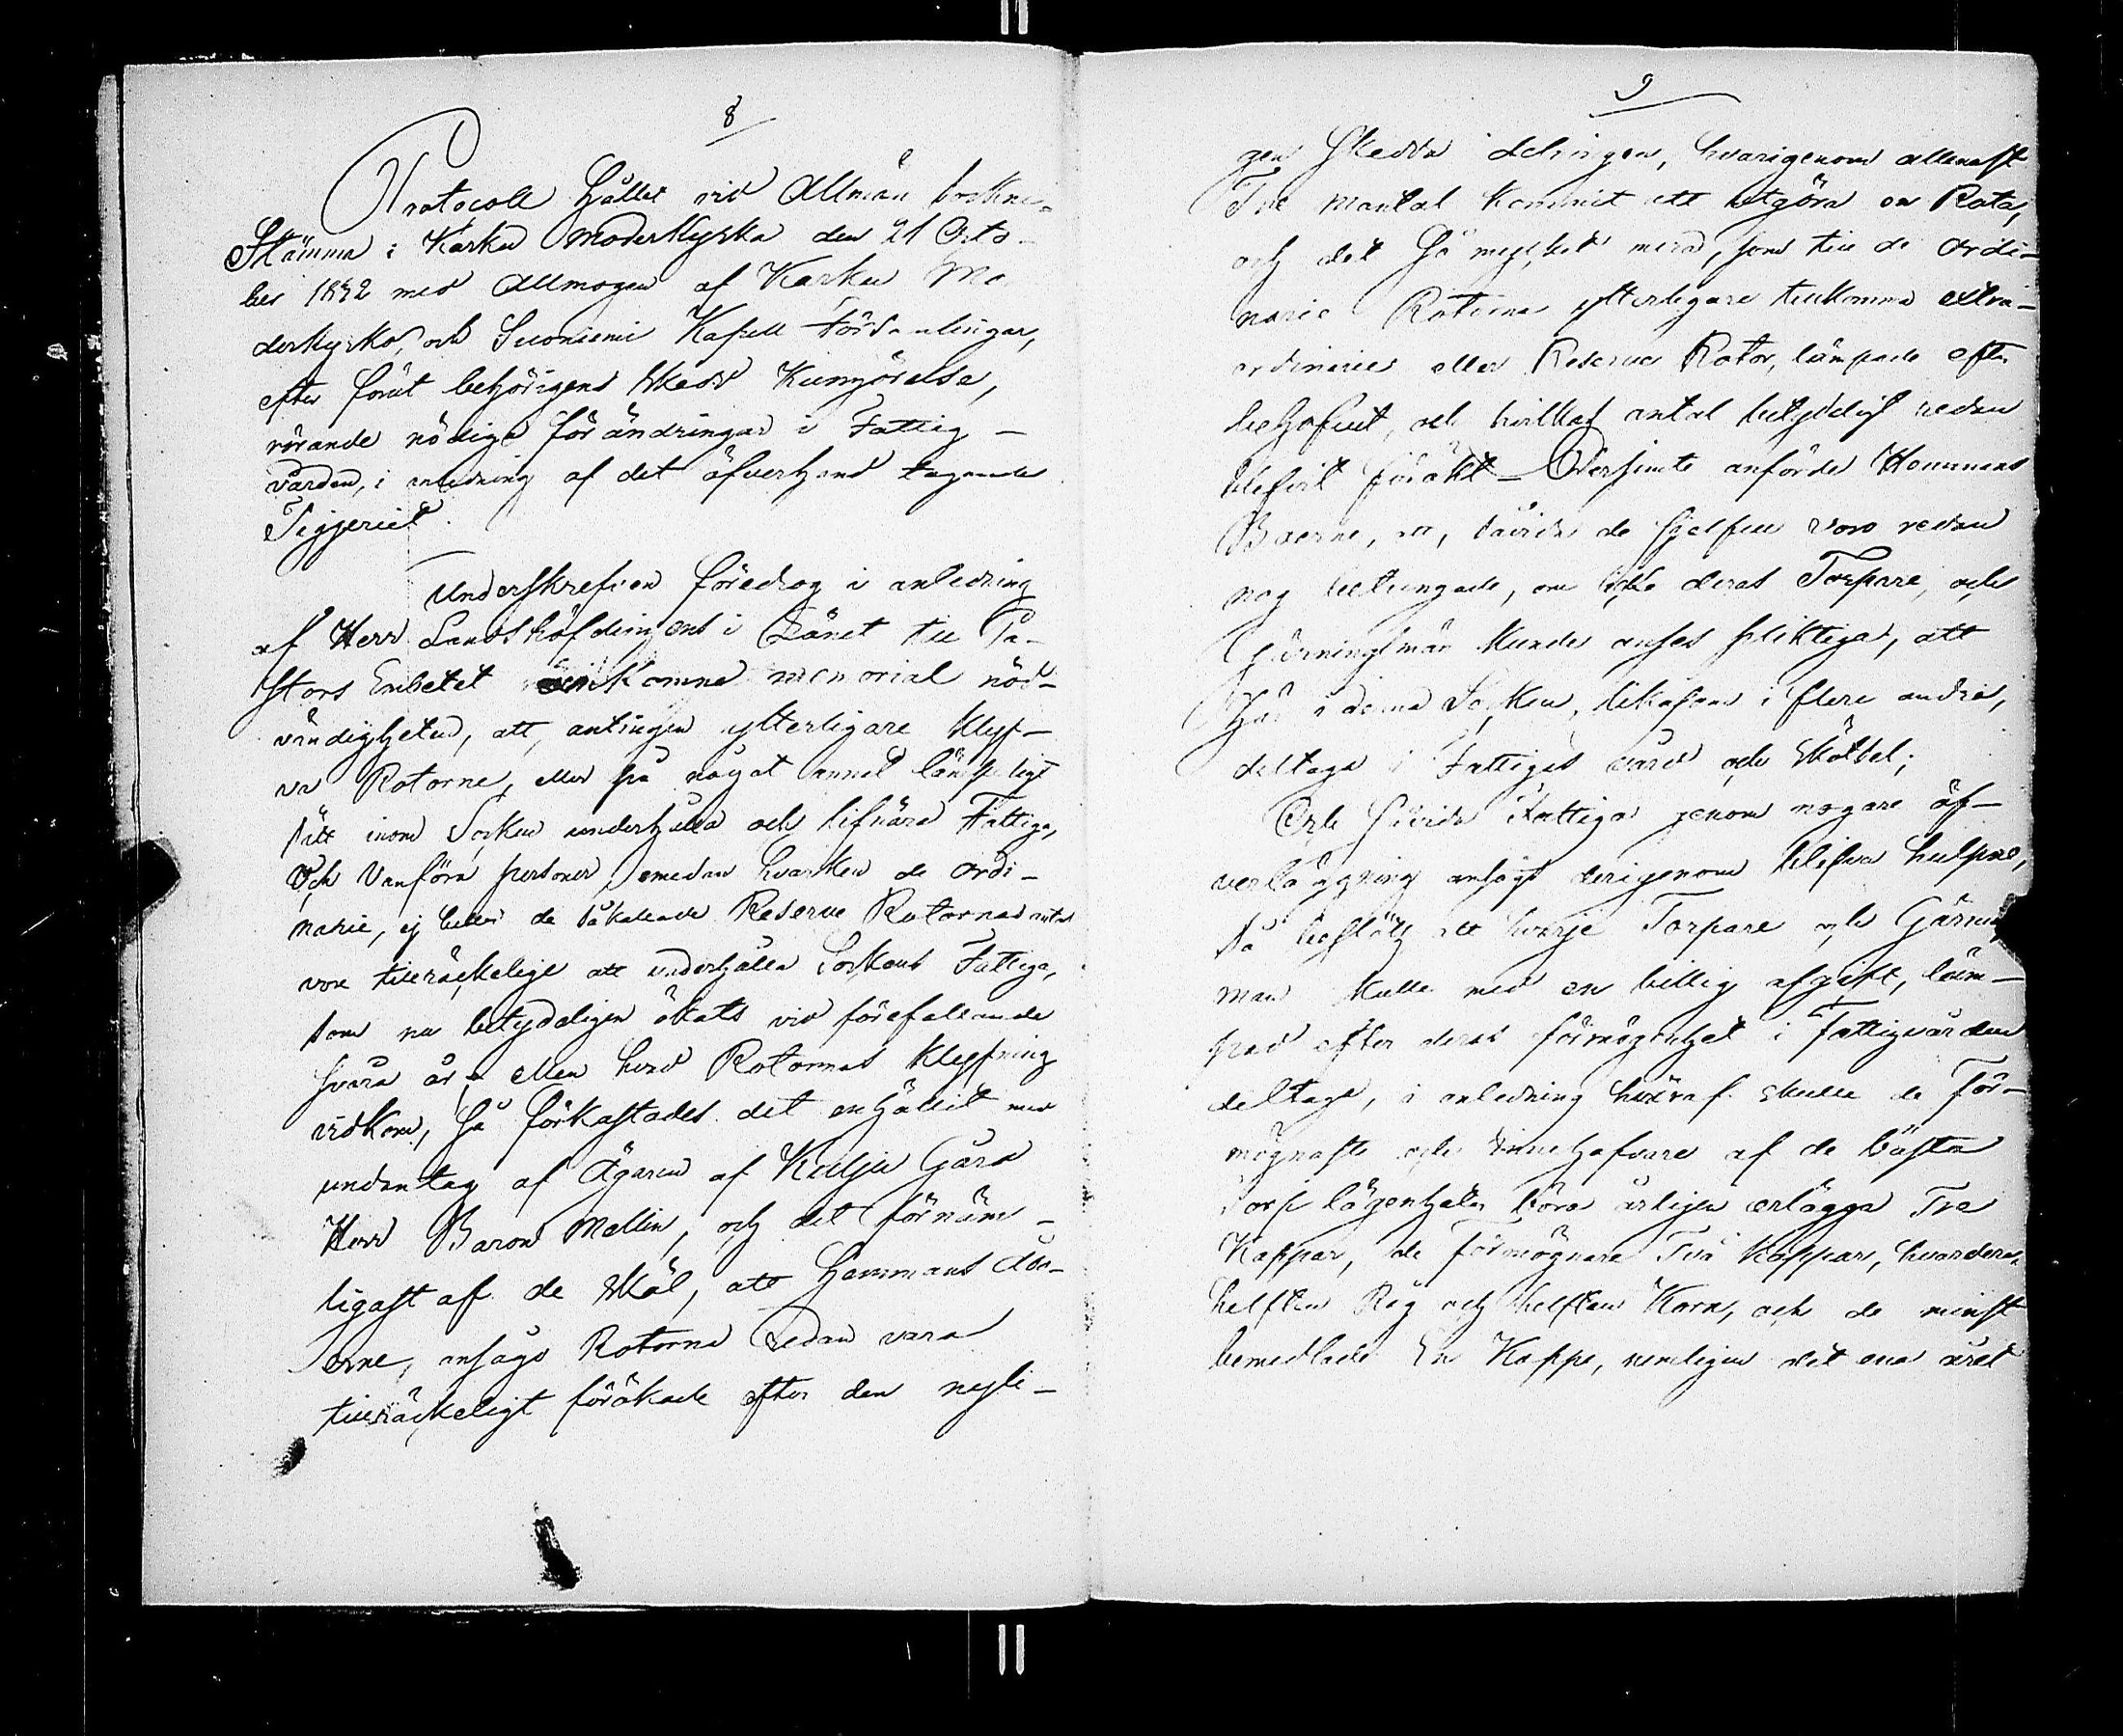 8
Protocoll hållet vid Allmän Sockne-
Stämma i Karku Moderkyrka den 21 Octo-
ber 1832 med Allmogen af Karku Mo
derkyrko, och Suoniemi Kapell Församlingar,
efter förut behörigens skedd Kungörelse,
rörande nödiga förändringar i Fattig-
vården, i anledning af det öfverhand tagande
Tiggeriet.
Underskrefven föredrog i anledning
af Herr Landshöfdingens i Länet till Pa-
stors Embetet inkomne memorial nöd-
vändigheten, att, antingen ytterligare klyf-
va Rotorne, eller på något annat lämpeligt
sätt inom Socken underhålla och lifnära Fattiga,
och Vanföra personer, emedan hvarken de ordi-
narie, ej heller de såkallade Reserve Rotornas antal
vore tillräckelige att underhålla Sockens Fattiga,
som nu betydeligen ökats vid förefallande
svåra år. Men hvad Rotornas klyfning
vidkom, så förkastades det enhälligt med
undantag af Ägaren af Kulju Gård
Herr Baron Mellin, och det förnäm-
ligast af de skäl, att Hemmans Åbo-
erne, ansågo Rotorna redan vara
tillräckeligt förökade efter den nyli-
9
gen skedda delningen, hvarigenom allenast
Tre mantal kommit att utgöra en Rota,
och det så mycket mera, som till de Ordi-
narie Rotorna ytterligare tillkomma extra-
ordinarie eller Reserve Rotor, lämpade efter
behofvet, och hvilkas antal betydeligt redan
blefvit förökt. Dersinte anförde Hemmans
Boerne, att, såvida de sjelfva voro redan
nog betungade, om icke deras Torpare, och
Gärningsmän kunde anses pliktiga, att
här i denna Socken, likasom i flere andra,
deltaga i Fattiges vård och skötsel;
Och såvida Fattiga genom nogare öf-
verläggning ansågs derigenom blifva hulpne,
så beslöts att hvarje Torpare och Gärnings
man skulle med en billig afgift, läm-
pad efter deras förmögenhet i Fattigvården
deltaga, i anledning hvaraf skulle de För-
mögnaste och innehafvare af de bästa
Torp lägenheter böra årligen erlägga Tre
Kappar, de Förmögnare Två kappar, hvardera
helften Råg och helften Korn, och de minst
bemedlade En Kappe, nemligen det ena året